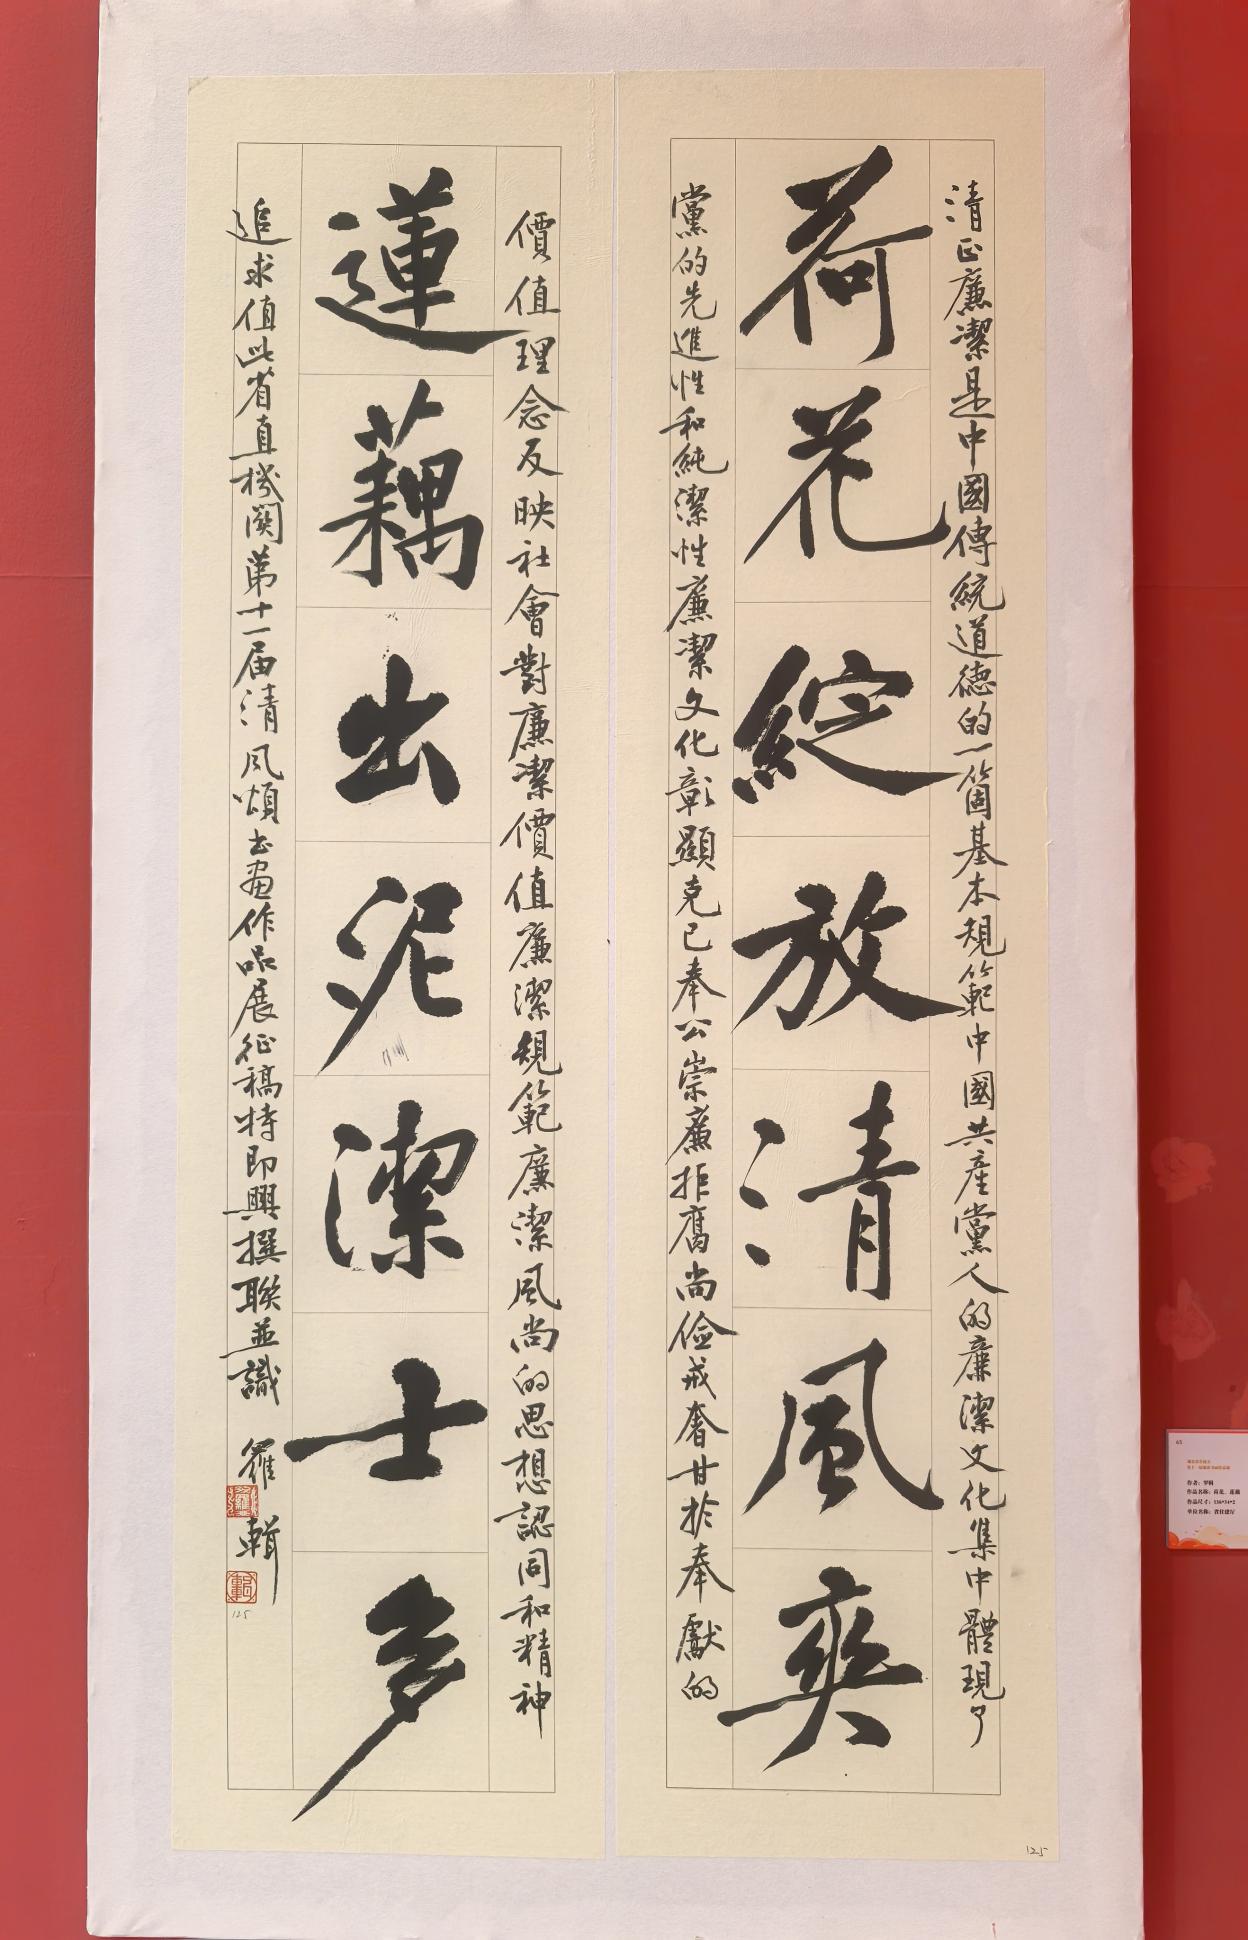 清正廉潔是中國傳統道德的一箇基本規範中國共產黨人的廉潔文化集中體現了
荷花綻放清風爽
黨的先進性和純潔性廉潔文化彰顯克己奉公崇廉拒腐尚儉戒奢甘於奉獻的
價值理念反映社會對廉潔價值廉潔規範廉潔風尚的思想認同和精神
蓮藕出泥潔士多
追求值此省直機関第十一届清風頌書画作品展征稿特即興撰聯並識
羅輯
125
125
65
作者：罗辑
作品名称：荷花、莲藕
作品尺寸：136*34*2
单位名称：省住建厅